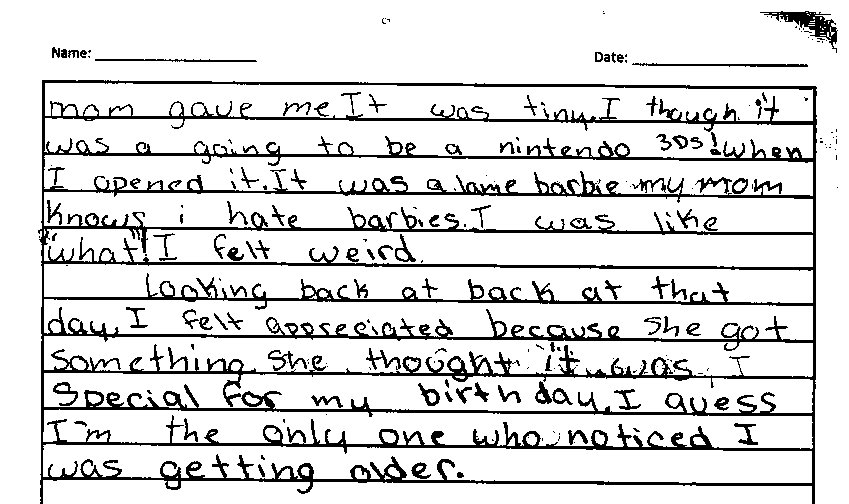 Name:
Date:
mom gave me. It was tiny. I though it
was a going to be a nintendo 3DS! When
I opened it. It was a lame barbie my mom
knows i hate barbies. I was like
"what"! I felt weird.
Looking back at back at that
day, I felt appreciated because she got
something she thought it was I
special for my birthday. I guess
I'm the only one who noticed I
was getting older.